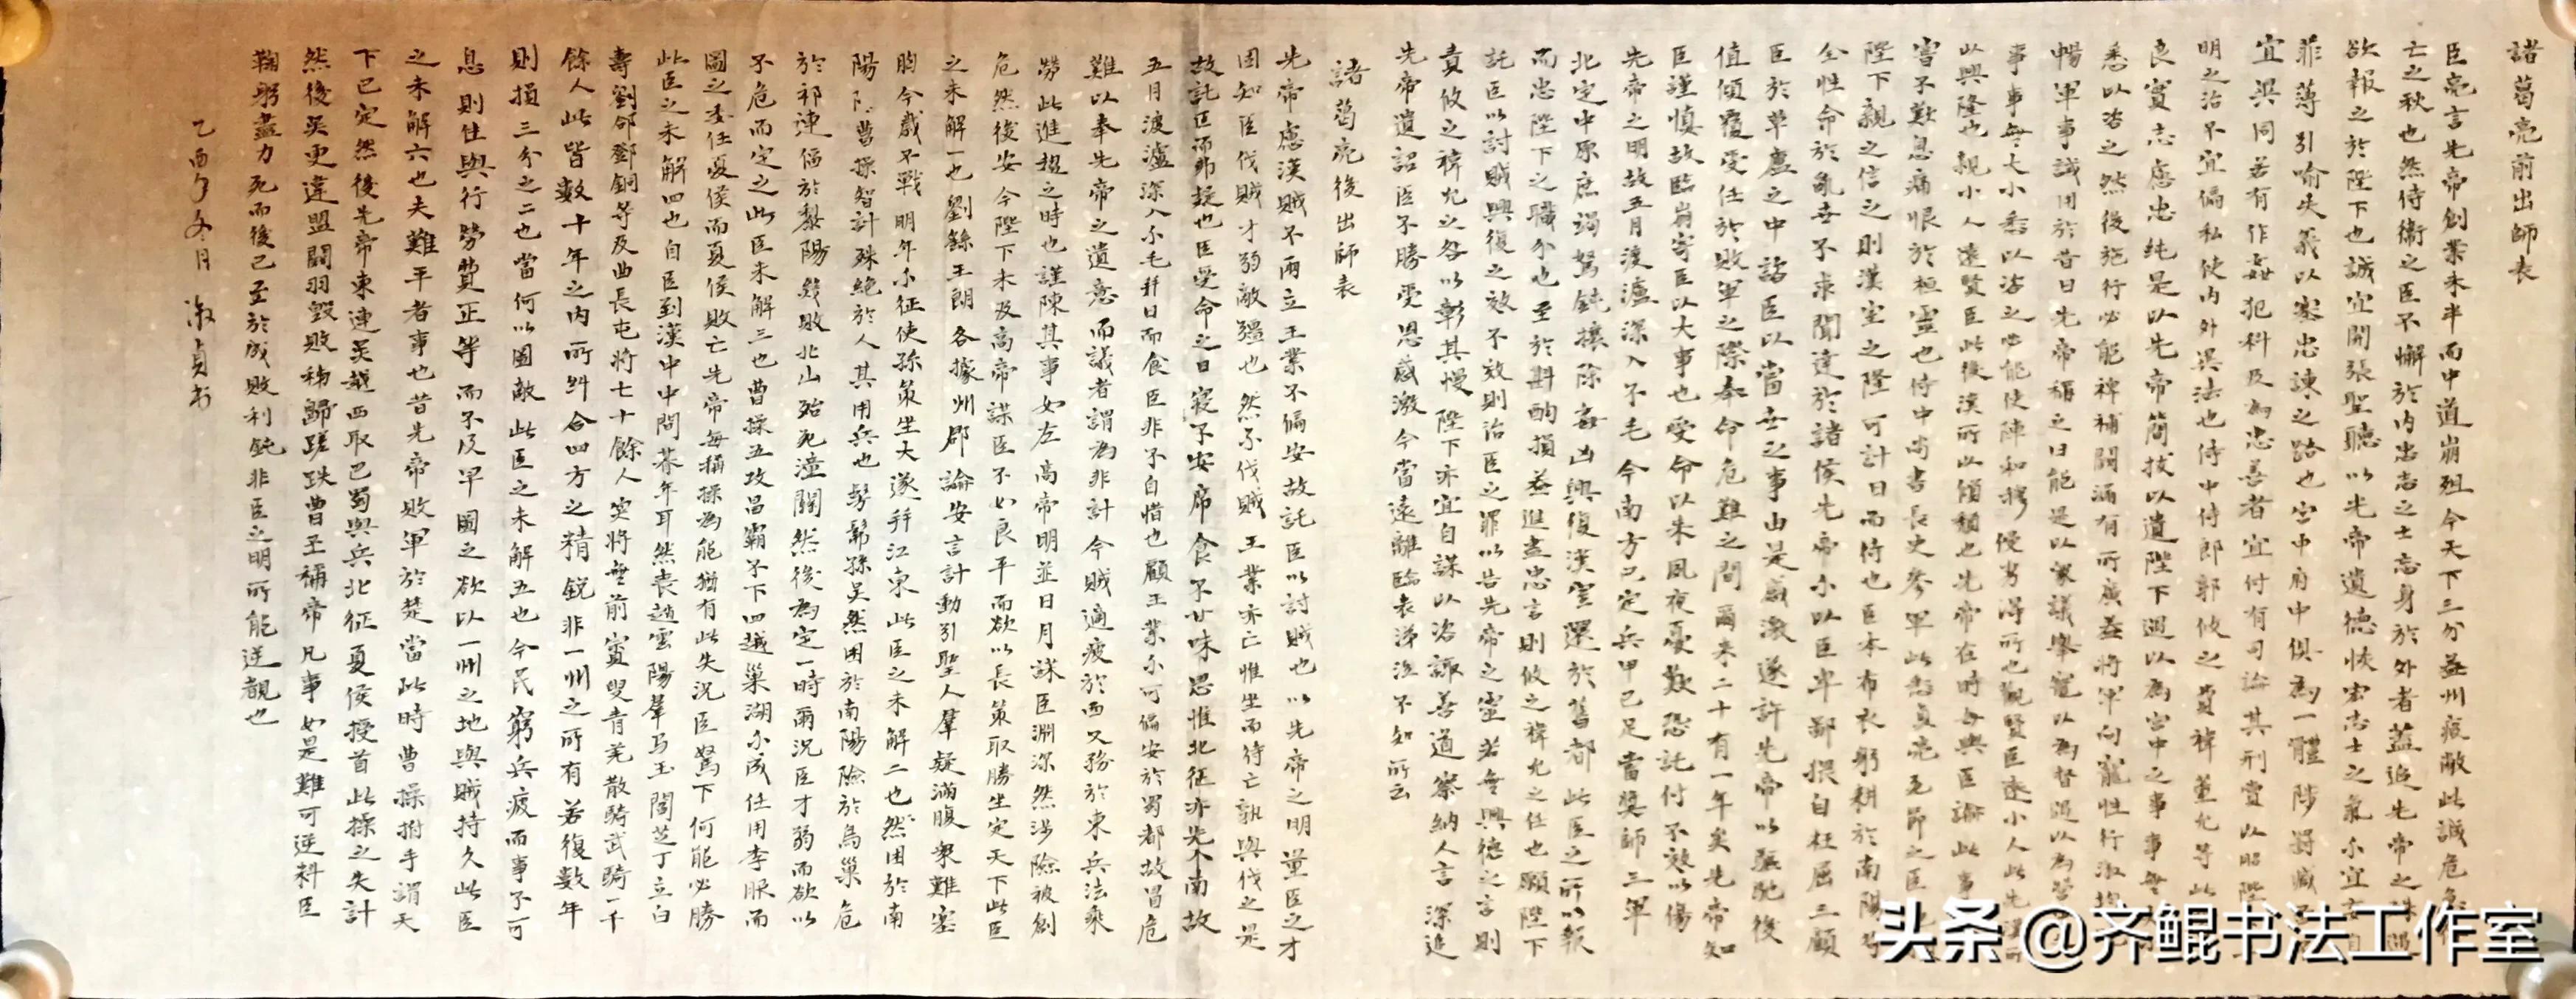 諸葛亮前出師表
臣亮言先帝創業未半而中道崩殂今天下三分益州疲敝此誠危急存
亡之秋也然侍衛之臣不懈於內忠志之士忘身於外者蓋追先帝之殊遇
欲報之於陛下也誠宜開張聖聽以光先帝遺德恢宏志士之氣不宜妄自
菲薄引喻失義以塞忠諫之路也宮中府中俱為一體陟罰臧否
宜異同若有作姦犯科及為忠善者宜付有司論其刑賞以昭陛
明之治不宜偏私使內外異法也侍中侍郎郭攸之費禕董允等此
良實志慮忠純是以先帝簡拔以遺陛下愚以為宮中之事事無
悉以咨之然後施行必能裨補闕漏有所廣益將軍向寵性行淑均
暢軍事試用於昔日先帝稱之曰能是以眾議舉寵以為督愚以為營
事事無大小悉以咨之必能使陣和穆優劣得所也親賢臣遠小人此先漢所
以興隆也親小人遠賢臣此後漢所以傾頹也先帝在時每與臣論此事
嘗不歎息痛恨於桓靈也侍中尚書長史參軍此悉貞亮死節之臣也
陛下親之信之則漢室之隆可計日而待也臣本布衣躬耕於南陽苟
全性命於亂世不求聞達於諸侯先帝不以臣卑鄙猥自枉屈三顧
臣於草廬之中諮臣以當世之事由是感激遂許先帝以驅馳後
值傾覆受任於敗軍之際奉命危難之間爾來二十有一年矣先帝知
臣謹慎故臨崩寄臣以大事也受命以來夙夜憂歎恐託付不效以傷
先帝之明故五月渡瀘深入不毛今南方已定兵甲已足當獎帥三軍
北定中原庶竭駑鈍攘除姦凶興復漢室還於舊都此臣之所以報
而忠陛下之職分也至於斟酌損益進盡忠言則攸之禕允之任也願陛下
託臣以討賊興復之效不效則治臣之罪以告先帝之靈若無興德之言則
責攸之禕允之咎以彰其慢陛下亦宜自謀以咨諏善道察納人言深追
先帝遺詔臣不勝受恩感激今當遠離臨表涕泣不知所云
諸葛亮後出師表
先帝慮漢賊不兩立王業不偏安故託臣以討賊也以先帝之明量臣之才
固知臣伐賊才弱敵彊也然不伐賊王業亦亡惟坐而待亡孰與伐之是
故託臣而弗疑也臣受命之日寢不安席食不甘味思惟北征宜先入南故
五月渡瀘深入不毛并日而食臣非不自惜也顧王業不可偏安於蜀都故冒危
難以奉先帝之遺意而議者謂為非計今賊適疲於西又務於東兵法乘
勞此進趨之時也謹陳其事如左高帝明並日月謀臣淵深然涉險被創
危然後安今陛下未及高帝謀臣不如良平而欲以長策取勝坐定天下此臣
之未解一也劉繇王朗各據州郡論安言計動引聖人羣疑滿腹衆難塞
胸今歲不戰明年不征使孫策坐大遂并江東此臣之未解二也然困於南
陽曹操智計殊絕於人其用兵也髣髴孫吳然困於南陽險於烏巢危
於祁連偪於黎陽幾敗北山殆死潼關然後為定一時爾況臣才弱而欲以
不危而定之此臣未解三也曹操五攻昌霸不下四越巢湖不成任用李服而
圖之委任夏侯而夏侯敗亡先帝每稱操為能猶有此失況臣駑下何能必勝
此臣之未解四也自臣到漢中中間朞年耳然喪趙雲陽羣馬玉閻芝丁立白
壽劉郃鄧銅等及曲長屯將七十餘人突將無前賨叟青羌散騎武騎一千
餘人此皆數十年之內所糾合四方之精銳非一州之所有若復數年
則損三分之二也當何以圖敵此臣之未解五也今民窮兵疲而事不可
息則住與行勞費正等而不及早圖之欲以一州之地與賊持久此臣
之未解六也夫難平者事也昔先帝敗軍於楚當此時曹操拊手謂天
下已定然後先帝東連吳越西取巴蜀舉兵北征夏侯授首此操之失計
然後吳更違盟關羽毀敗秭歸蹉跌曹丕稱帝凡事如是難可逆料臣
鞠躬盡力死而後已至於成敗利鈍非臣之明所能逆覩也
乙酉冬月 淑貞书
头条@齐鲲书法工作室